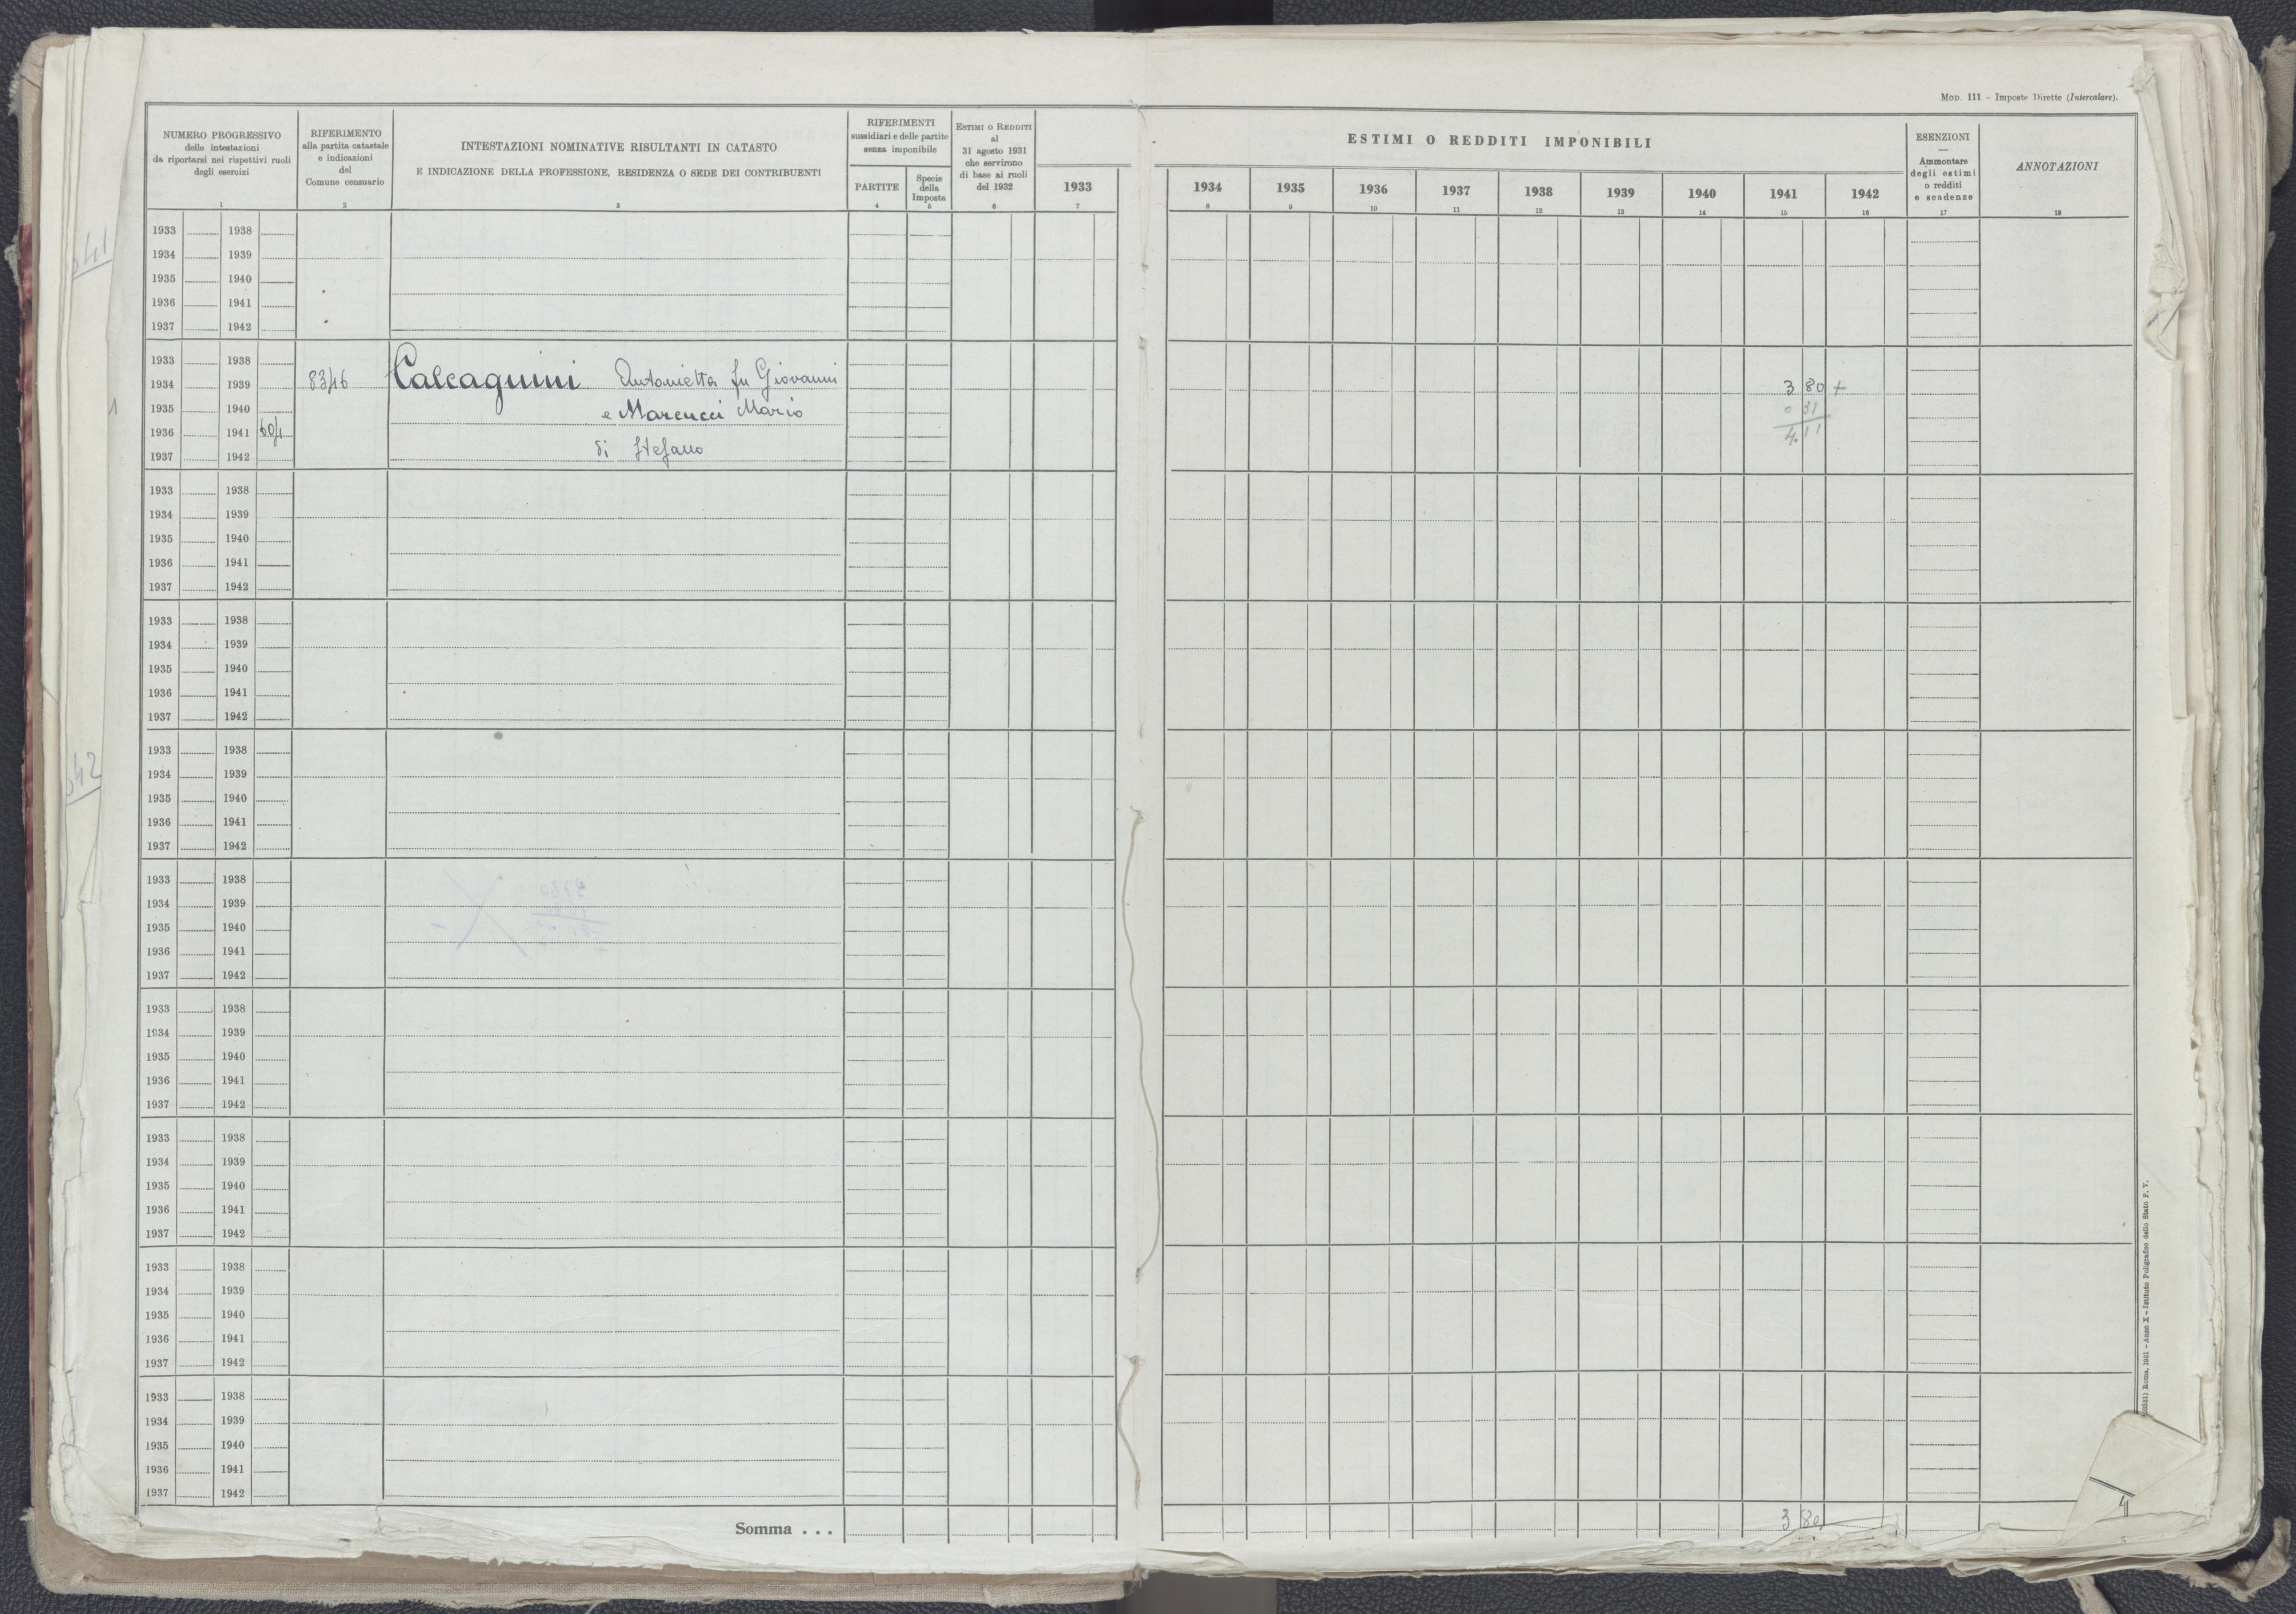 MOD. 111 – Imposte Dirette (Intercalare).
NUMERO PROGRESSIVO
delle intestazioni
da riportarsi nei rispettivi ruoli
degli esercizi
RIFERIMENTO
alla partita catastale
e indicazioni
del
Comune censuario
INTESTAZIONI NOMINATIVE RISULTANTI IN CATASTO
E INDICAZIONE DELLA PROFESSIONE, RESIDENZA O SEDE DEI CONTRIBUENTI
RIFERIMENTI
sussidiari e delle partite
senza imponibile
PARTITE
Specie
della
Imposta
ESTIMI O REDDITI
al
31 agosto 1931
che servirono
di base ai ruoli
del 1932
ESTIMI O REDDITI IMPONIBILI
1933 1934 1935 1936 1937 1938 1939 1940 1941 1942
ESENZIONI
—
Ammontare
degli estimi
o redditi
e scadenze
ANNOTAZIONI
1 2 3 4 5 6 7 8 9 10 11 12 13 14 15 16 17 18
1933 1938
1934 1939
1935 1940
1936 1941
1937 1942
1933 1938
1934 1939 83/16 Calcagnini Antonietta fu Giovanni 3 80 +
1935 1940 e Marcucci Mario 0 31
1936 1941 4.11
1937 1942 di Stefano
1933 1938
1934 1939
1935 1940
1936 1941
1937 1942
1933 1938
1934 1939
1935 1940
1936 1941
1937 1942
1933 1938
1934 1939
1935 1940
1936 1941
1937 1942
1933 1938
1934 1939
1935 1940
1936 1941
1937 1942
1933 1938
1934 1939
1935 1940
1936 1941
1937 1942
1933 1938
1934 1939
1935 1940
1936 1941
1937 1942
1933 1938
1934 1939
1935 1940
1936 1941
1937 1942
1933 1938
1934 1939
1935 1940
1936 1941
1937 1942
Somma . . . 3 80
Roma, 1931 – Anno X – Istituto Poligrafico dello Stato P. V.